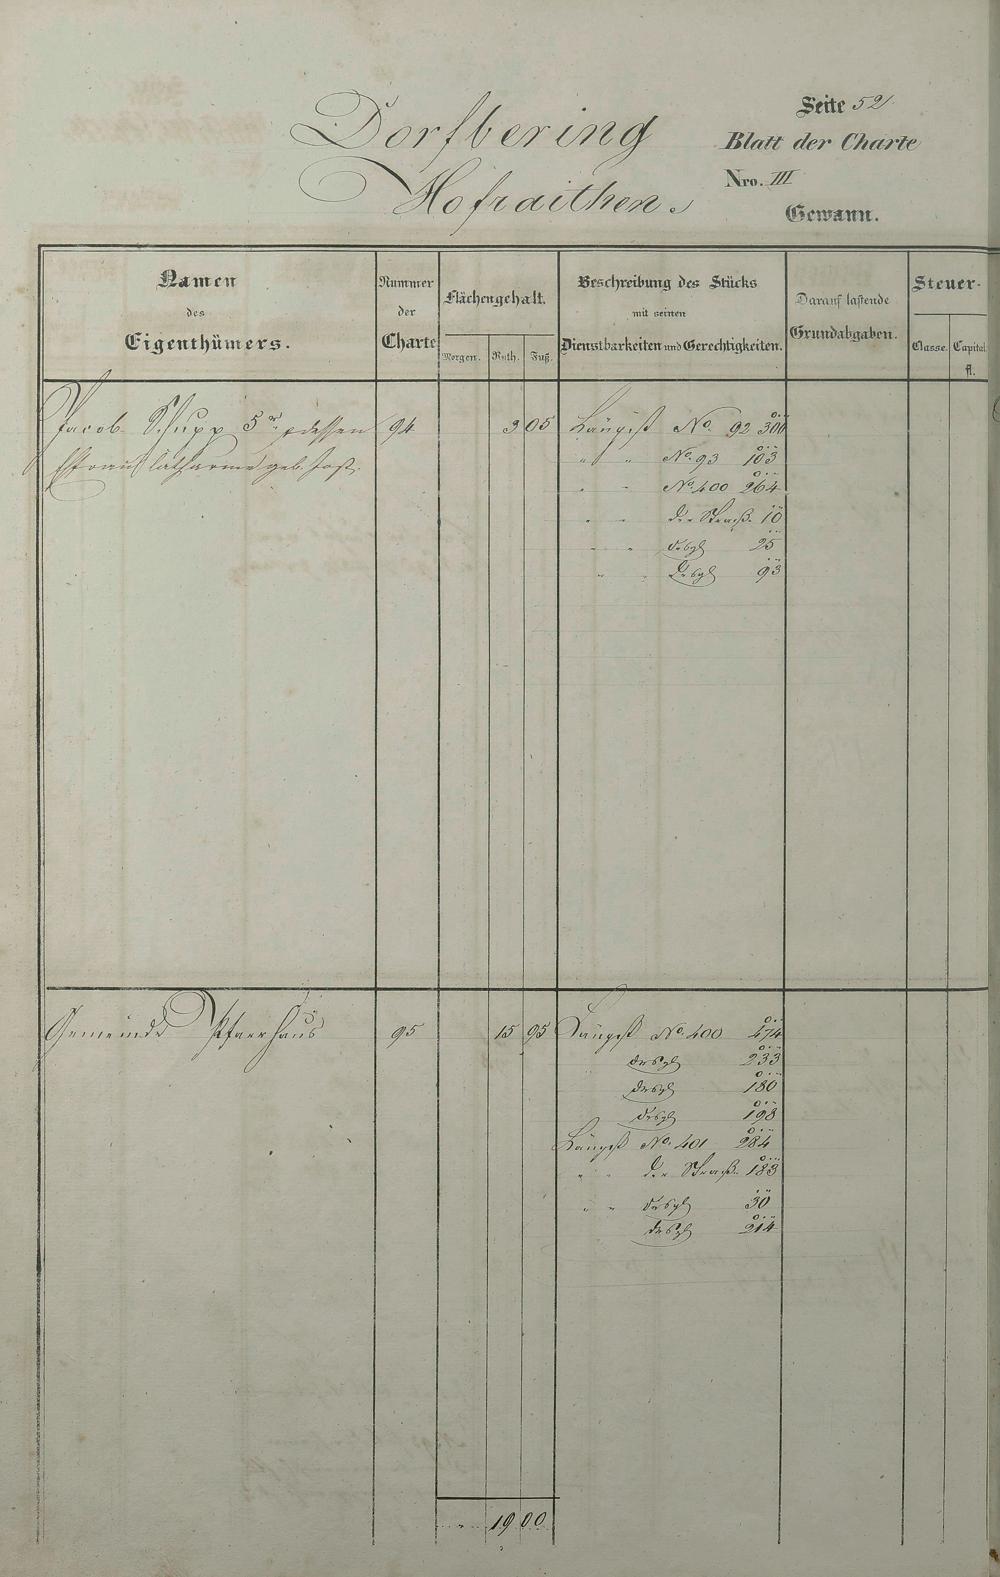 Dorfbering
Hofraithen.
Seite 52
Blatt der Charte
Nro. III
Gewann.
Namen
des
Eigenthümers.
Nummer
der
Charte
Flächengehalt.
Morgen. Ruth. Fuß.
Beschreibung des Stücks
mit seinen
Dienstbarkeiten und Gerechtigkeiten.
Darauf lastende
Grundabgaben.
Steuer-
Classe. Capital.
fl.
Jacob Schupp 5r dessen 94 3 05 Längst No. 92 300
Ehefrau Catharine geb. Jost. " " No. 93 103
" " No. 400 264
" " der Straße 10
" " desgl 25
" " desgl 93
Gemeinde Pfarrhaus 95 15 95 Längst No. 400 474
desgl 233
desgl 180
desgl 198
Längst No. 401 284
" " der Straße 183
" " desgl 30
desgl 214
" " 19 00